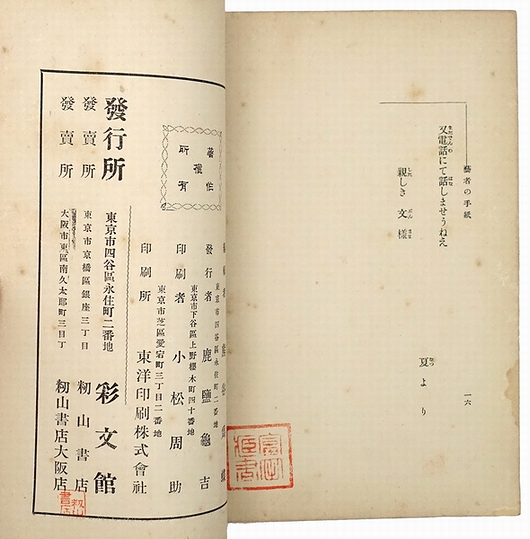 藝者の手紙
一六
又電話にて話しませうねえ
親しき文樣
夏より
著作權所有
東京市四谷區永住町二番地
發行者 鹿鹽龜吉
東京市下谷區上野櫻木町四十番地
印刷者 小松周助
東京市芝區愛宕町三丁目二番地
印刷所 東洋印刷株式會社
東京市四谷區永住町二番地
發行所 彩文館
東京市京橋區銀座三丁目
發賣所 籾山書店
大阪市東區南久太郎町三目丁
發賣所 籾山書店大阪店